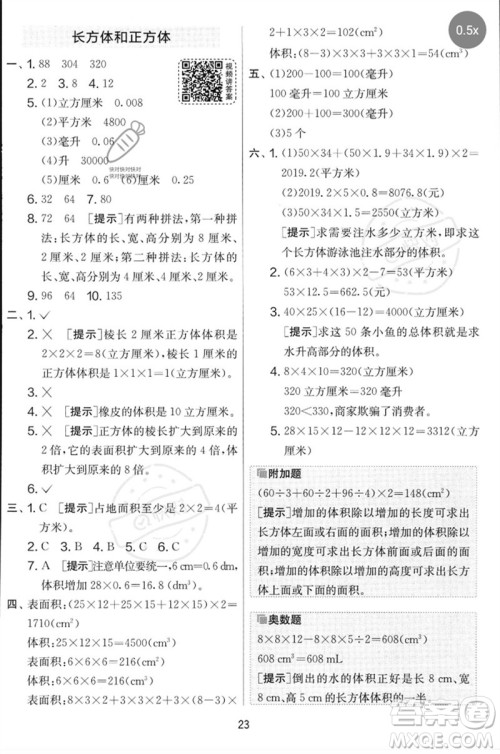 长方体和正方体
一、1.88 304 320
2.2 3.8 4.12
视频讲答案
5.(1)立方厘米 0.008
(2)平方米 4800
(3)毫升 0.24
(4)升 30000
快对快对快对
(5)厘米 (6)厘米 0.25
快对快对快对
6.32 64 7.80
8.72 64 [提示]有两种拼法,第一种拼
法:长方体的长、宽、高分别为8厘米、
2厘米、2厘米;第二种拼法:长方体的
长、宽、高分别为4厘米、4厘米、2厘米。
9.96 64 10.135
二、1.✓
2.× [提示]棱长2厘米正方体体积是
2×2×2=8(立方厘米),棱长1厘米体
积是1×1×1=1(立方厘米)。
3.×
4.× [提示]橡皮的体积是10立方厘米。
5.× [提示]正方体的棱长扩大到原来
的2倍,表面积扩大到原来的4倍,体
积扩大到原来的8倍。
6.✓
三、1.C [提示]占地面积至少是2×2=4(平
方米)。
2.C 3.B 4.A 5.C 6.C
7.A [提示]注意单位要统一,6cm=0.6dm,
体积增加28×0.6=16.8(dm³)。
四、表面积:(25×12+25×15+12×15)×2=
1710(cm²)
体积:25×12×15=4500(cm³)
表面积:6×6×6=216(cm²)
体积:6×6×6=216(cm³)
表面积:8×3×2+3×2×2+(8×3)×
2+1×3×2=
体积:8×3×2+3×1×2=54(cm³)
0.5x
五、(1)200-100=100(毫升)
100毫升=100立方厘米
(2)300-200=100(毫升)
100毫升=100立方厘米
(3)5个
六、1.(1)50×34+(50×1.9+34×1.9)×2=
2019.2(平方米)
(2)2019.2×5×0.8=8076.8(元)
(3)50×34×1.5=2550(立方米)
[提示]求需要注水多少立方米,就是求这个
长方体游泳池注水部分的体积。
2.(6×3+6×2+3×2)×2-7=53(平方米)
53×12.5=662.5(元)
3.40×25×(32-28)=4000(cm³)
4000÷50=80(cm³)
[提示]求这50条小鱼的总体积就是求
水升高部分的体积。
4.8×8×5=320(立方厘米)
320立方厘米=320毫升
320<320.2,商家欺骗了消费者。
5.28×15×12-12×9×8=4176(cm³)
附加题
(60÷3+60÷2+96÷4)×2=148(cm²)
[提示]用增加的体积除以增加的长度可求出长
方体左面或右面的面积;用增加的体积除以增
加的宽度可求出长方体前面或后面的面积;用
增加的体积除以增加的高度可求出长方体上
面或下面的面积。
奥数题
8×8×2+8×8×(17-2)÷2=608(cm³)
608cm³=608mL
[提示]倒出的水的体积正好是高为(17-2)cm
的长方体体积的一半。
23
答案圈
MXQE.COM